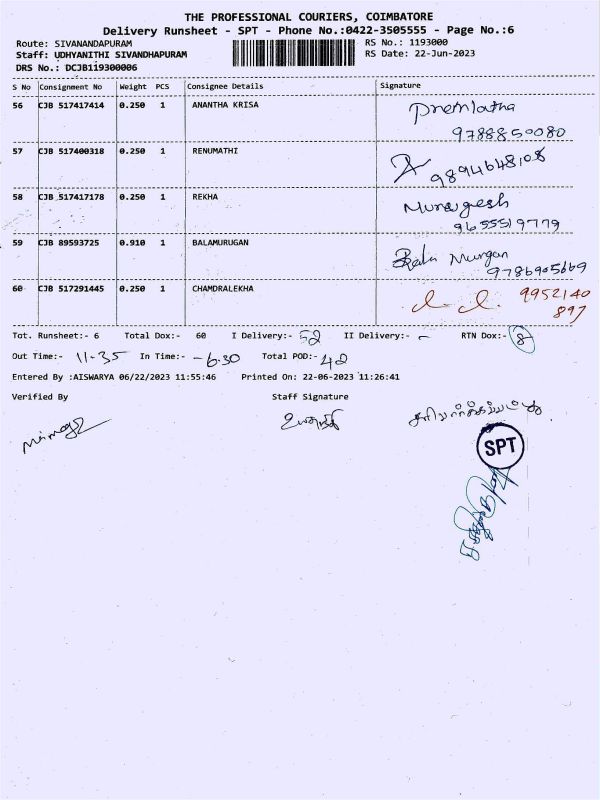 THE PROFESSIONAL COURIERS, COIMBATORE
Delivery Runsheet - SPT - Phone No.:0422-3505555 - Page No.:6
Route: SIVANANDAPURAM RS No.: 1193000
Staff: UDHYANITHI SIVANDHAPURAM RS Date: 22-Jun-2023
DRS No.: DCJB119300006
S No Consignment No Weight PCS Consignee Details Signature
56 CJB 517417414 0.250 1 ANANTHA KRISA Premlatha
9788850080
57 CJB 517400318 0.250 1 RENUMATHI
9894648108
58 CJB 517417178 0.250 1 REKHA Murugesh
9655519779
59 CJB 89593725 0.910 1 BALAMURUGAN Bala Murugan
9786905669
60 CJB 517291445 0.250 1 CHAMDRALEKHA 9952140
897
Tot. Runsheet:- 6 Total Dox:- 60 I Delivery:- 52 II Delivery:- - RTN Dox:- 8
Out Time:- 11-35 In Time:- -6.30 Total POD:- 42
Entered By :AISWARYA 06/22/2023 11:55:46 Printed On: 22-06-2023 11:26:41
Verified By Staff Signature
சரிபார்க்கப்பட்டது
SPT